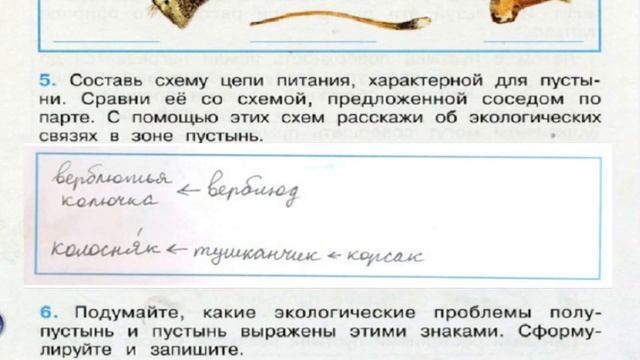 5. Составь схему цепи питания, характерной для пусты-
ни. Сравни её со схемой, предложенной соседом по
парте. С помощью этих схем расскажи об экологических
связях в зоне пустынь.
верблюжья
колючка ← верблюд
колосня́к ← тушканчик ← корсак
6. Подумайте, какие экологические проблемы полу-
пустынь и пустынь выражены этими знаками. Сформу-
лируйте и запишите.